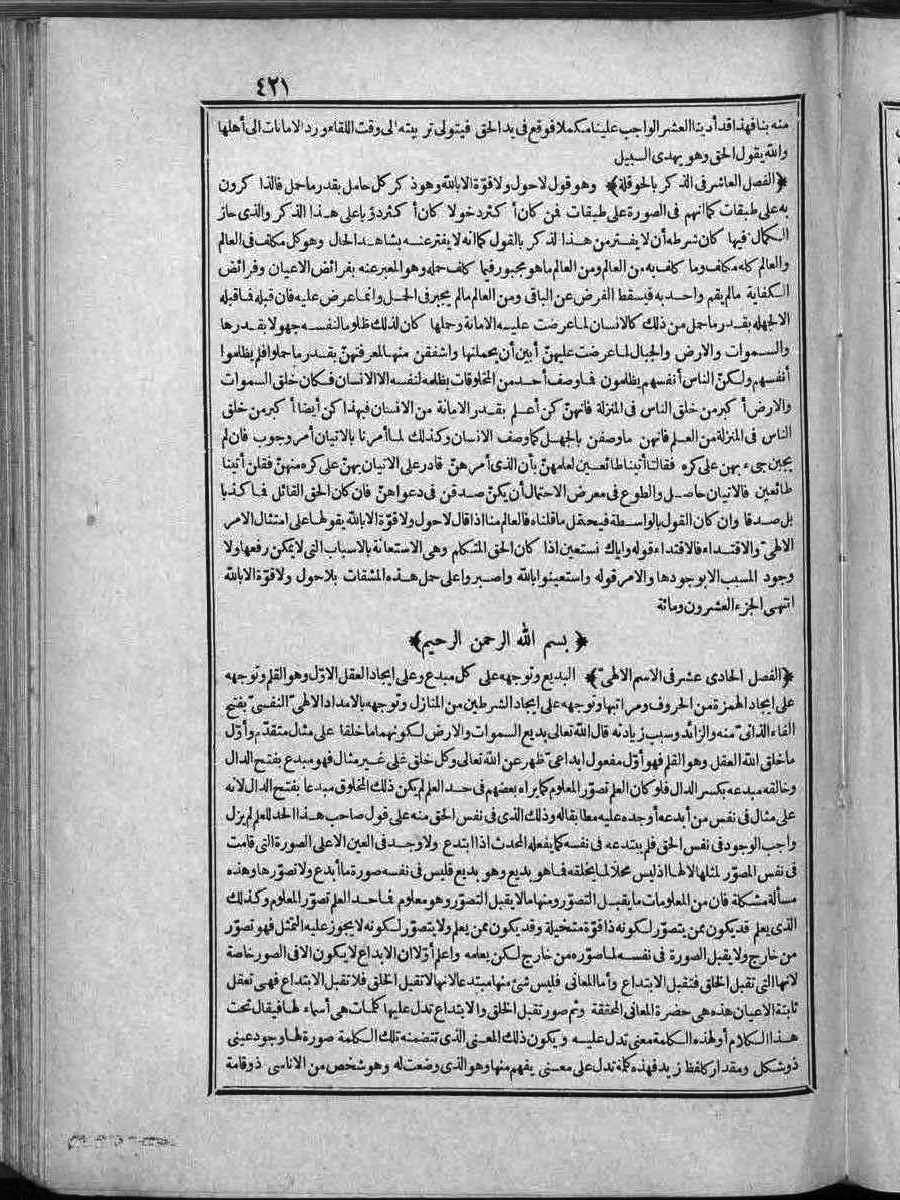 ٤٢١
منه بنا فهذا قد أدينا العشر الواجب علينا مكملا فوقع فى يد الحق فيتولى تربيته الى وقت اللقاء ورد الامانات الى أهلها
والله يقول الحق وهو يهدى السبيل
﴿الفصل العاشر فى الذكر بالحوقلة﴾ وهو قول لاحول ولا قوّة الا بالله وهو ذكر كل حامل بقدر ما حمل فالذاكرون
به على طبقات كما انهم فى الصورة على طبقات فمن كان أكثر دخولا كان أكثر دؤبا على هذا الذكر والذى حاز
الكمال فيها كان شرطه أن لا يفتر من هذا لذكر بالقول كما انه لا يفتر عنه بشاهد الحال وهو كل مكلف فى العالم
والعالم كله مكلف وما كلف به من العالم ومن العالم ما هو مجبور فيما كلف حمله وهو المعبر عنه بفرائض الاعيان وفرائض
الكفاية مالم يقم واحد به فيسقط الفرض عن الباقى ومن العالم مالم يجبر فى الحمل وانما عرض عليه فان قبله فما قبله
الا لجهله بقدر ما حمل من ذلك كالانسان لما عرضت عليه الامانة وحملها كان لذلك ظلوما لنفسه جهولا بقدرها
والسموات والارض والجبال لما عرضت عليهنّ أبين أن يحملنها واشفقن منها لمعرفتهنّ بقدر ما حملوا فلم يظلموا
أنفسهم ولكنّ الناس أنفسهم يظلمون فما وصف أحد من المخلوقات بظلمه لنفسه الا الانسان فكان خلق السموات
والارض أكبر من خلق الناس فى المنزلة فانهنّ كن أعلم بقدر الامانة من الانسان فبهذا كن أيضا أكبر من خلق
الناس فى المنزلة من العلم فانهن ما وصفن بالجهل كما وصف الانسان وكذلك لما أمرنا بالاتيان أمر وجوب فان لم
يجبن جىء بهن على كره فقالتا أتينا طائعين لعلمهنّ بأن الذى أمرهنّ قادر على الاتيان بهنّ على كره منهنّ فقلن أتينا
طائعين فالاتيان حاصل والطوع فى معرض الاحتمال أن يكنّ صدقن فى دعواهنّ فان كان الحق القائل فما كذبا
بل صدقا وان كان القول بالواسطة فيحتمل ما قلناه فالعالم منا اذا قال لاحول ولا قوّة الا بالله يقولها على امتثال الامر
الالهىّ والاقتداء فالاقتداء قوله واياك نستعين اذا كان الحق المتكلم وهى الاستعانة بالاسباب التى لا يمكن رفعها ولا
وجود المسبب الا بوجودها والامر قوله واستعينوا بالله واصبروا على حمل هذه المشقات بلاحول ولا قوّة الا بالله
انتهى الجزء العشرون ومائة
﴿بسم الله الرحمن الرحيم﴾
﴿الفصل الحادى عشر فى الاسم الالهىّ﴾ البديع وتوجهه على كل مبدع وعلى ايجاد العقل الاوّل وهو القلم وتوجهه
على ايجاد الهمزة من الحروف ومراتبها وتوجهه على ايجاد الشرطين من المنازل وتوجهه بالامداد الالهىّ النفسىّ بفتح
الفاء الذاتىّ منه والزائد وسبب زيادته قال الله تعالى بديع السموات والارض لكونهما ما خلقا على مثال متقدّم وأوّل
ما خلق الله العقل وهو القلم فهو أوّل مفعول ابداعىّ ظهر عن الله تعالى وكل خلق على غير مثال فهو مبدع بفتح الدال
وخالقه مبدعه بكسر الدال فلو كان العلم تصوّر المعلوم كما يراه بعضهم فى حد العلم لم يكن ذلك المخلوق مبدعا بفتح الدال لانه
على مثال فى نفس من أبدعه أوجده عليه مطابقا له وذلك الذى فى نفس الحق منه على قول صاحب هذا الحد للعلم لم يزل
واجب الوجود فى نفس الحق فلم يبتدعه فى نفسه كما يفعله المحدث اذا ابتدع ولا وجد فى العين الا على الصورة التى قامت
فى نفس المصوّر لمثلها لا لها اذ ليس محلا لما يخلقه فما هو بديع وهو بديع فليس فى نفسه صورة ما أبدع ولا تصوّرها وهذه
مسألة مشكلة فان من المعلومات ما يقبل التصوّر ومنها ما لا يقبل التصوّر وهو معلوم فما حد العلم تصوّر المعلوم وكذلك
الذى يعلم قد يكون ممن يتصوّر لكونه ذا قوّة متخيلة وقد يكون ممن يعلم ولا يتصوّر لكونه لا يجوز عليه التمثل فهو تصوّر
من خارج ولا يقبل الصورة فى نفسه لما صوّره من خارج لكن يعلمه واعلم أوّلا ان الابداع لا يكون الا فى الصور خاصة
لانها التى تقبل الخلق فتقبل الابتداع وأما المعانى فليس شئ منها مبتدعا لانها لا تقبل الخلق فلا تقبل الابتداع فهى تعقل
ثابتة الاعيان هذه هى حضرة المعانى المحققة وثم صور تقبل الخلق والابتداع تدل عليها كلمات هى أسماء لها فيقال تحت
هذا الكلام أو لهذه الكلمة معنى تدل عليه ويكون ذلك المعنى الذى تتضمنه تلك الكلمة صورة لها وجود عينى
ذو شكل ومقدار كلفظ زيد فهذه كلمة تدل على معنى يفهم منها وهو الذى وضعت له وهو شخص من الاناسى ذو قامة